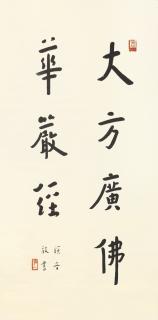 大方廣佛
華嚴經